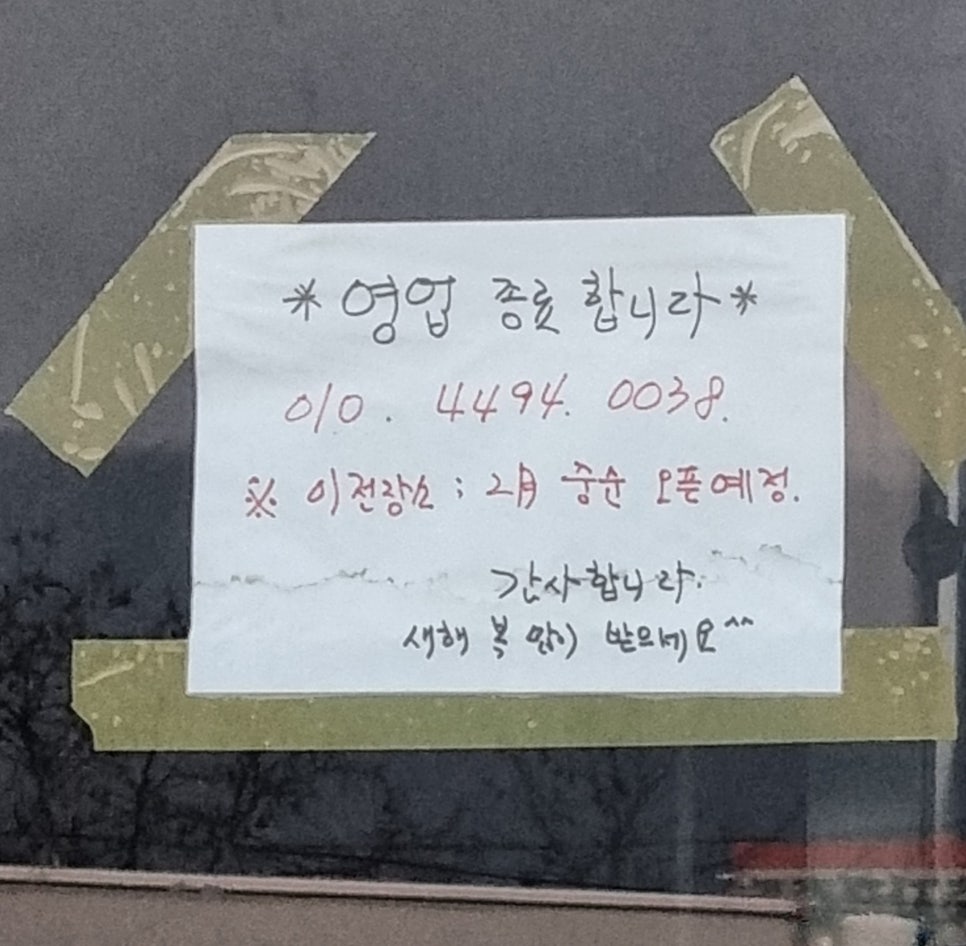 *영업 종료 합니다*
010. 4494. 0038.
※ 이전장소 : 2月 중순 오픈예정.
감사합니다.
새해 복 많이 받으세요^^